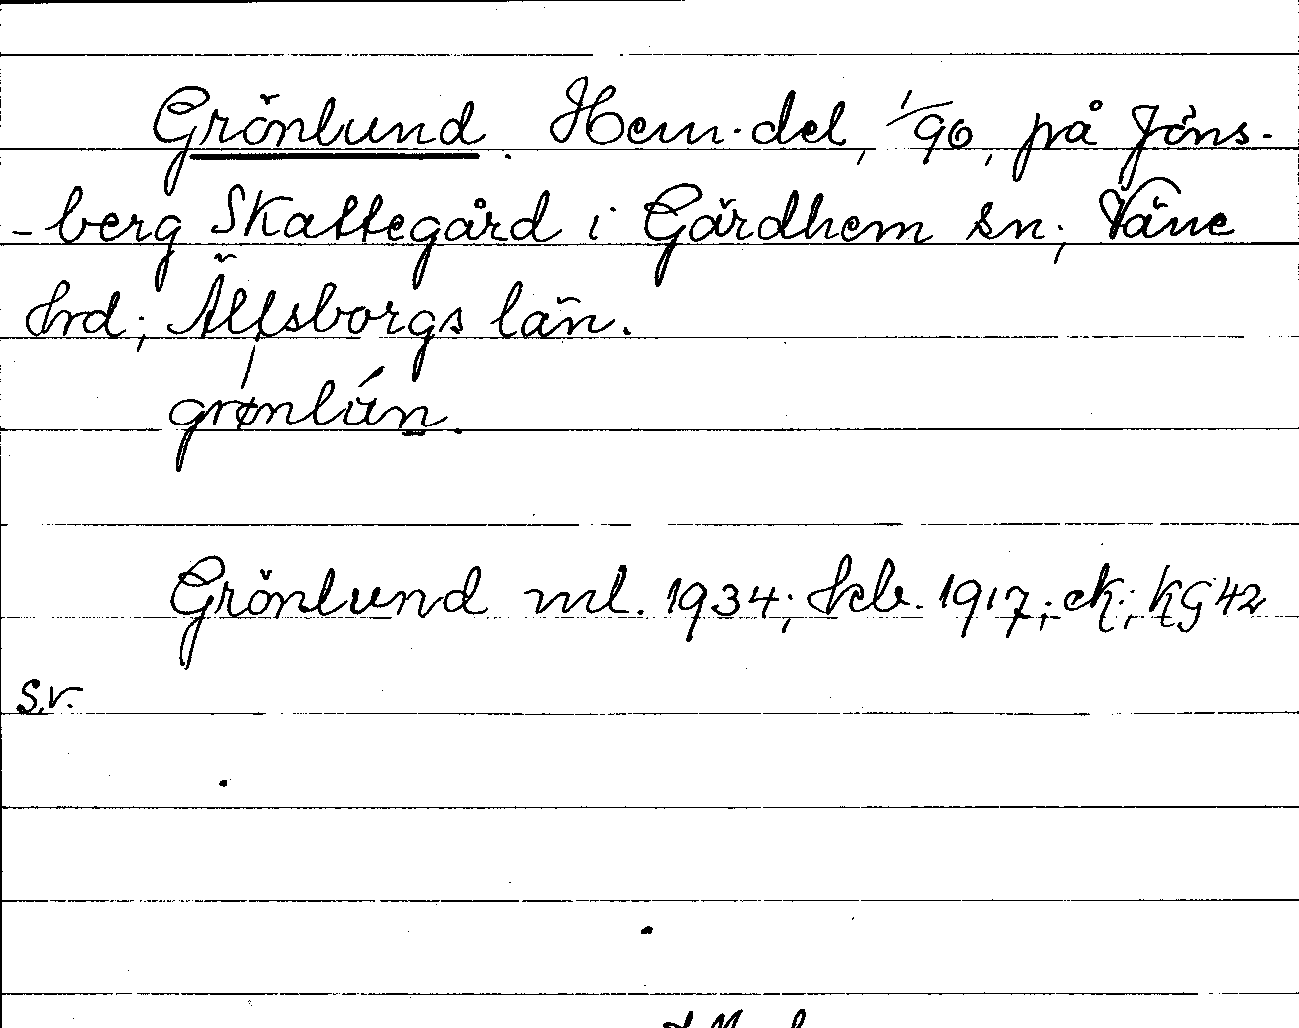 Grönlund. Hem. del, 1/96, på Jöns-
-berg Skattegård i Gärdhem sn; Väne
hrd; Älfsborgs län.
grønlún.
Grönlund ml. 1934; skb. 1917; ek; KG 42
S.V.